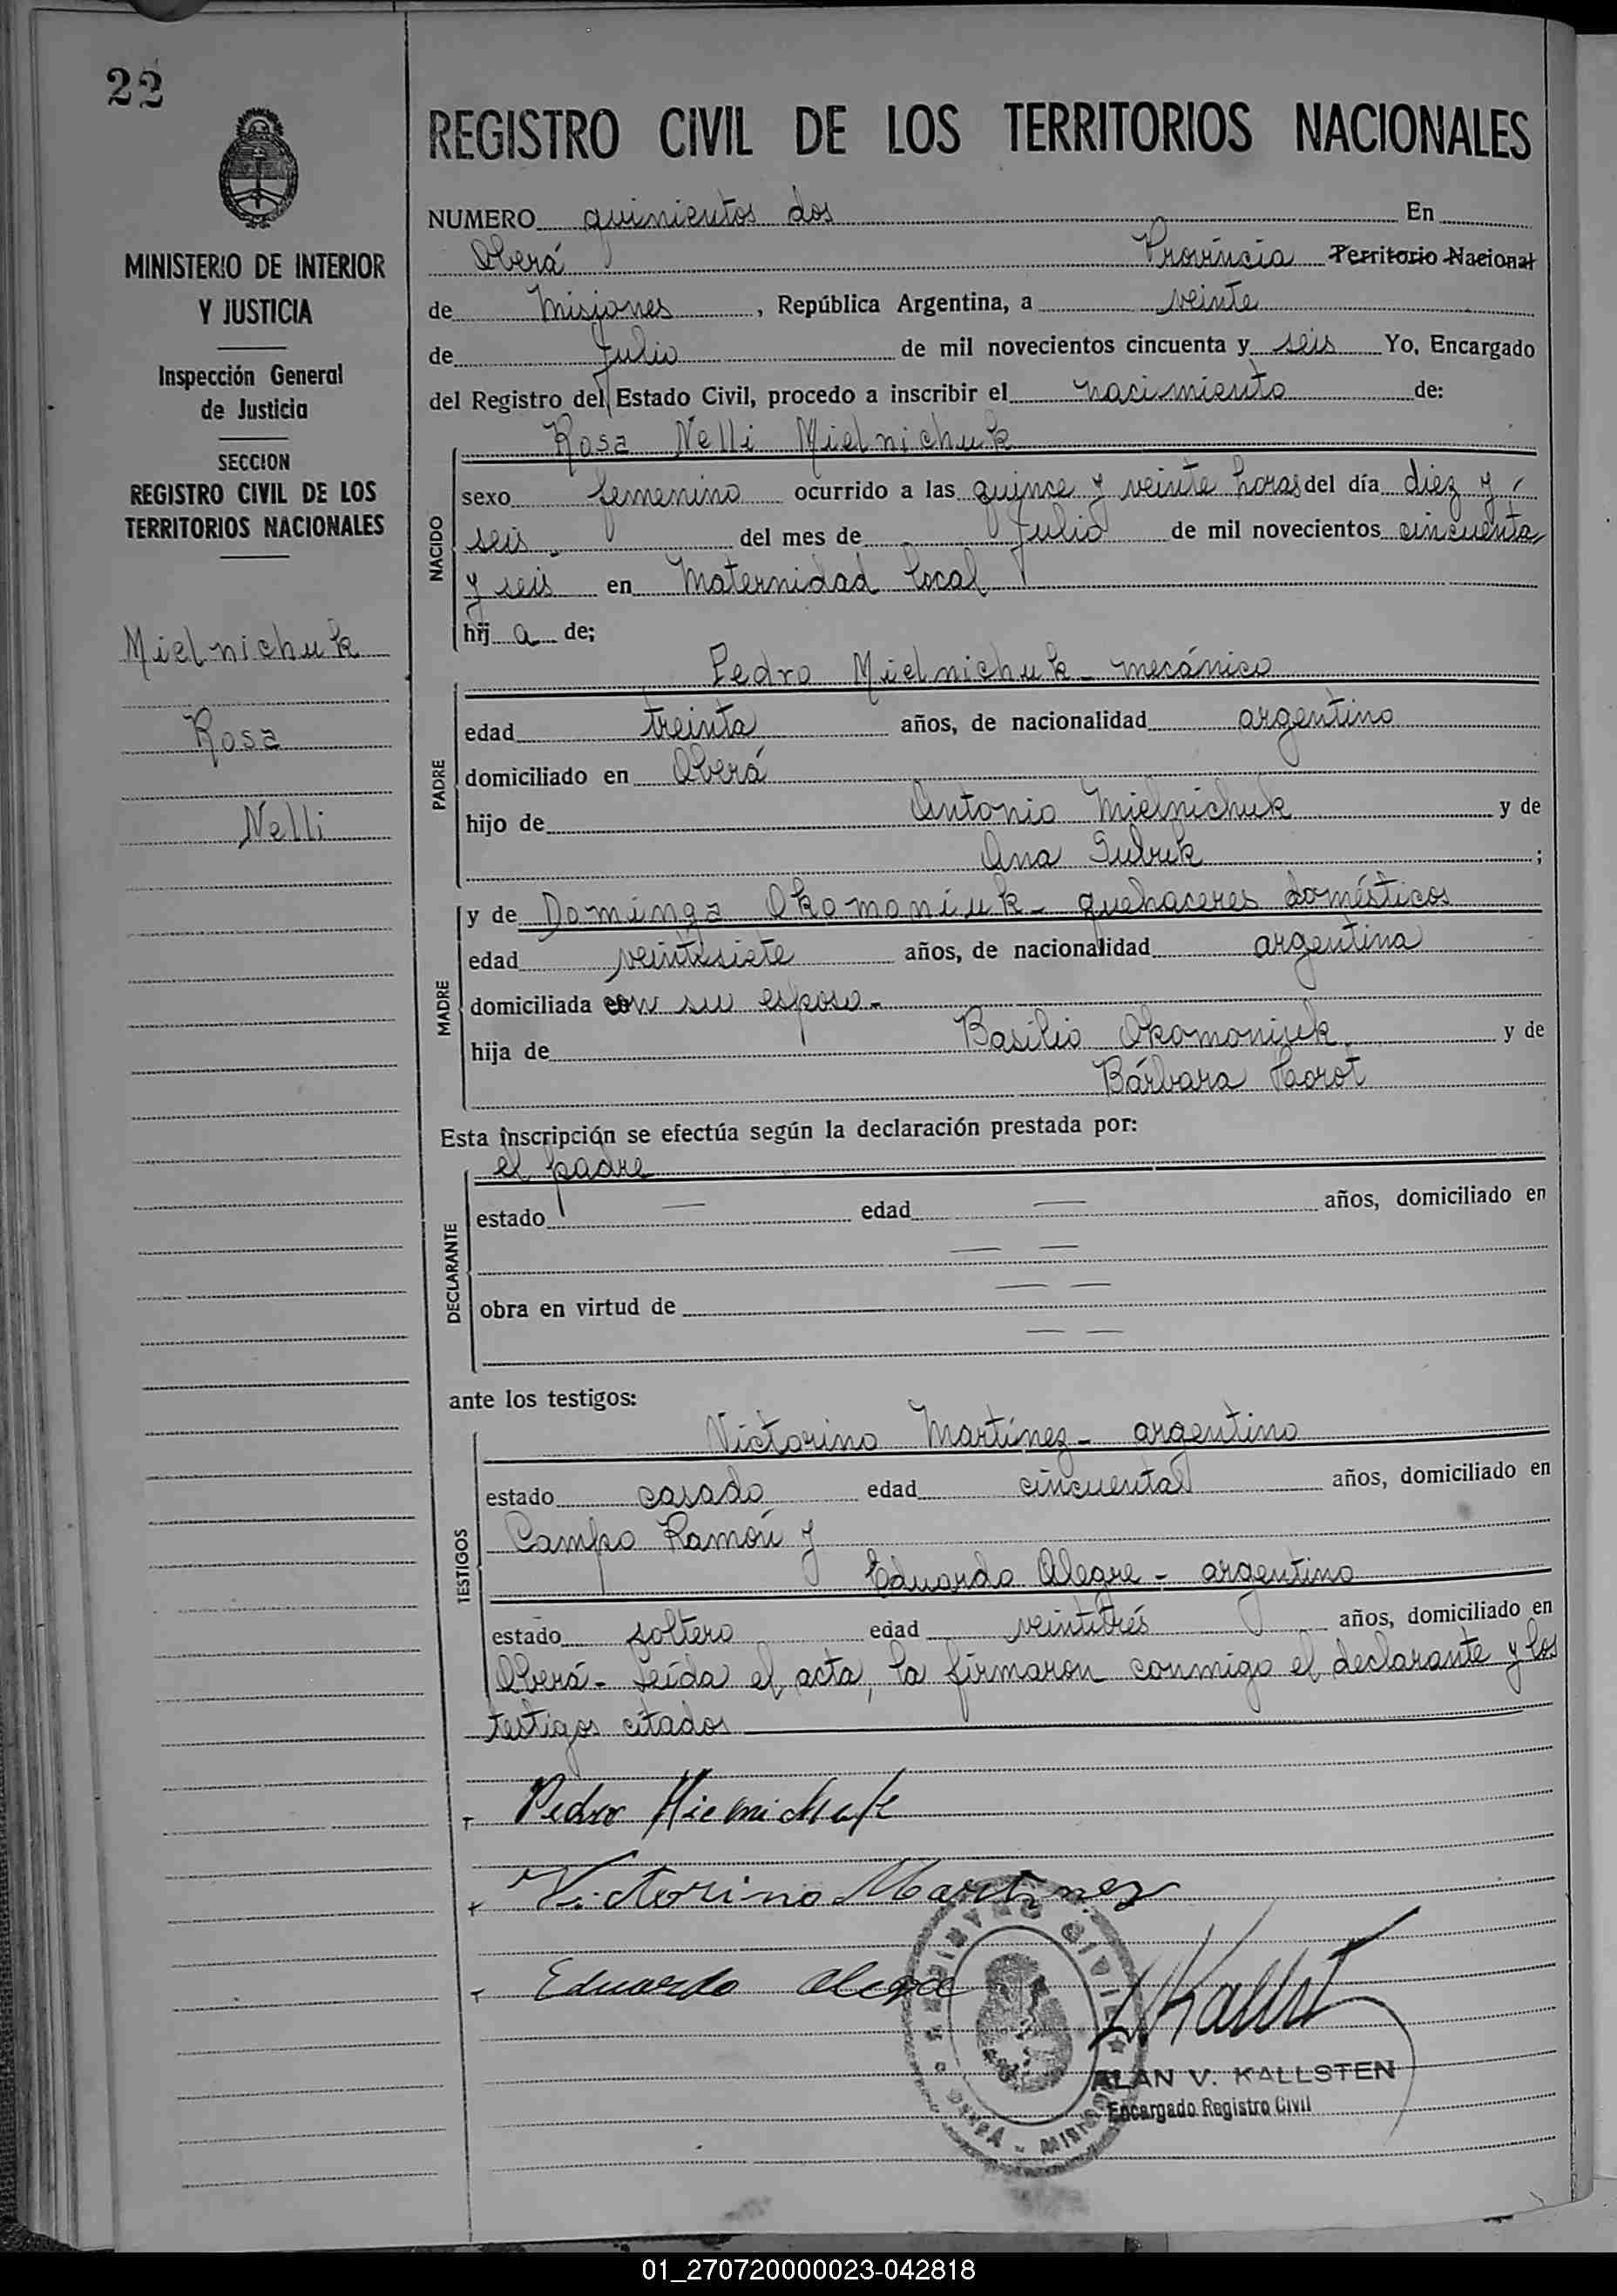 22
REGISTRO CIVIL DE LOS TERRITORIOS NACIONALES
MINISTERIO DE INTERIOR
Y JUSTICIA
Inspección General
de Justicia
SECCION
REGISTRO CIVIL DE LOS
TERRITORIOS NACIONALES
Mielnichuk
Rosa
Nelli
NUMERO quinientos dos En
Oberá Provincia Territorio Nacional
de Misiones, República Argentina, a veinte
de Julio de mil novecientos cincuenta y seis Yo, Encargado
del Registro del Estado Civil, procedo a inscribir el nacimiento de:
Rosa Nelli Mielnichuk
NACIDO
sexo femenino ocurrido a las quince y veinte horas del día diez y
seis del mes de Julio de mil novecientos cincuenta
y seis en Maternidad local
hij a de;
PADRE
Pedro Mielnichuk - mecánico
edad treinta años, de nacionalidad argentino
domiciliado en Oberá
hijo de Antonio Mielnichuk y de
Ana ;
MADRE
y de Dominga Okomoniuk - quehaceres domésticos
edad veintisiete años, de nacionalidad argentina
domiciliada con su esposo -
hija de Basilio Okomoniuk y de
Bárbara
Esta inscripción se efectúa según la declaración prestada por:
DECLARANTE
el padre
estado — edad — años, domiciliado en
— —
obra en virtud de — —
— —
ante los testigos:
TESTIGOS
Victorino Martínez - argentino
estado casado edad cincuenta años, domiciliado en
Campo Ramón y
Eduardo Alegre - argentino
estado soltero edad veintitrés años, domiciliado en
Oberá - Leída el acta, la firmaron conmigo el declarante y los
testigos citados
Pedro Mielnichuk
Victorino Martinez
Eduardo Alegre
ALAN V. KALLSTEN
Encargado Registro Civil
01_270720000023-042818